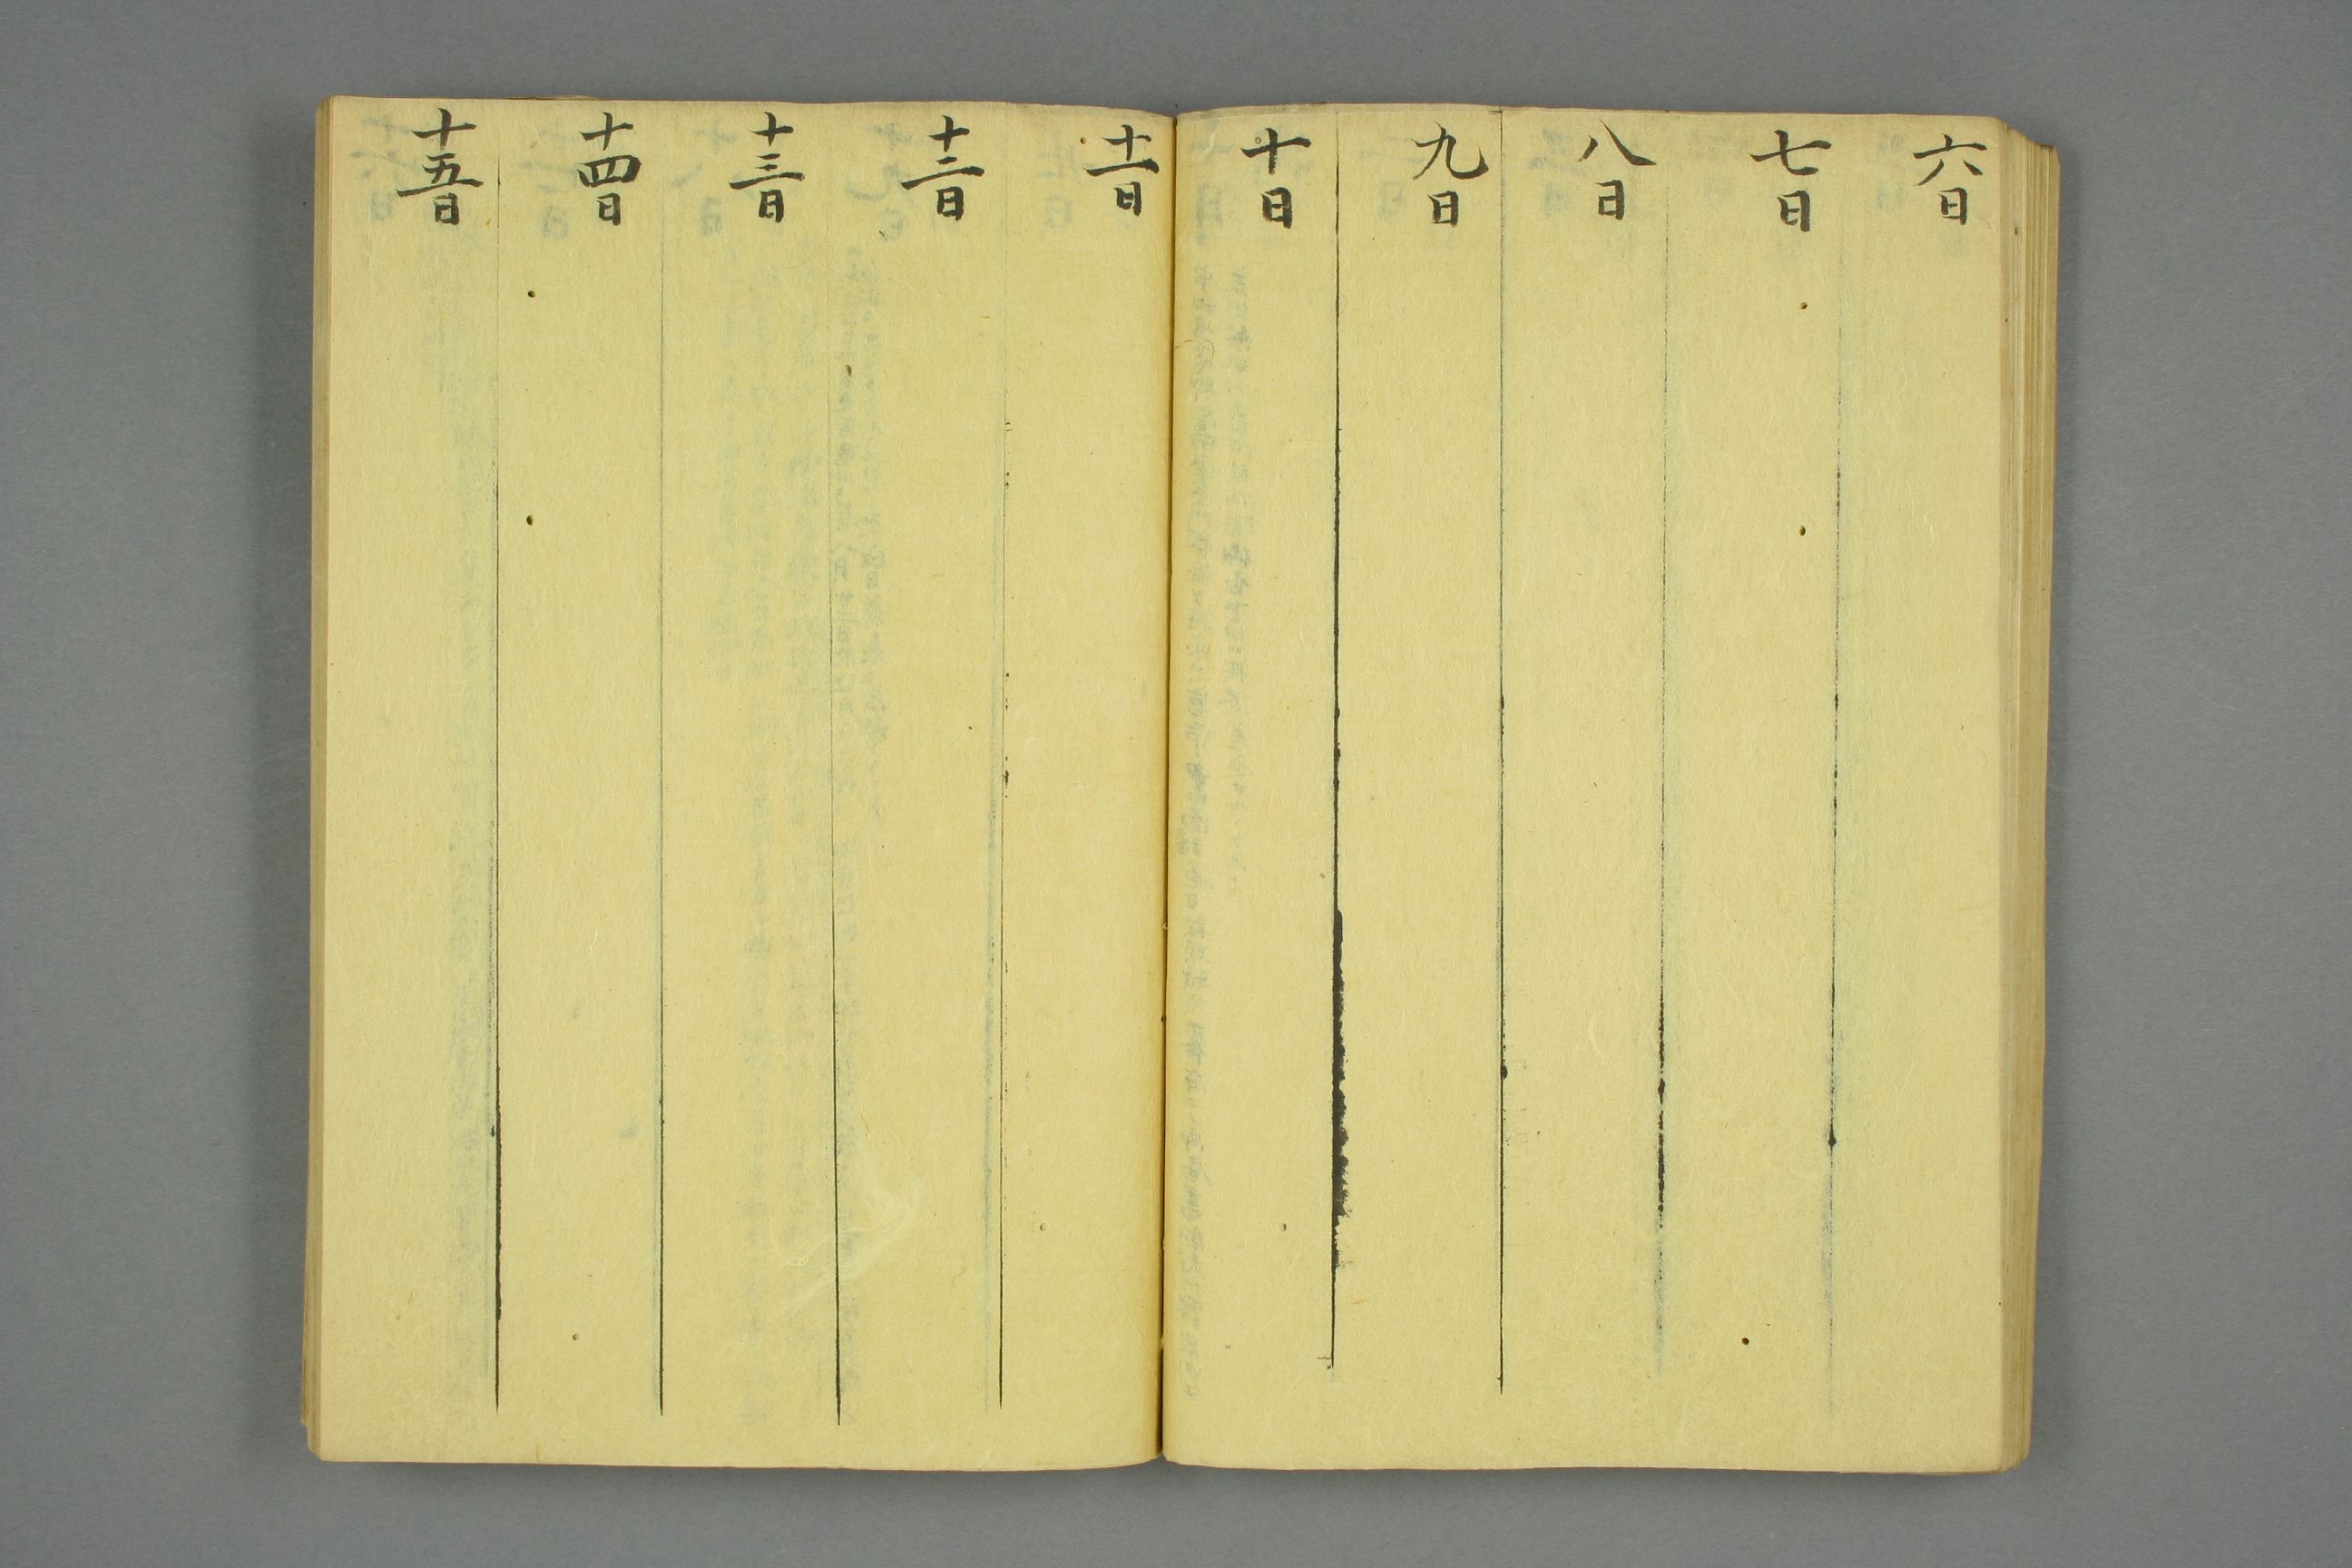 六日
七日
八日
九日
十日
十一日
十二日
十三日
十四日
十五日